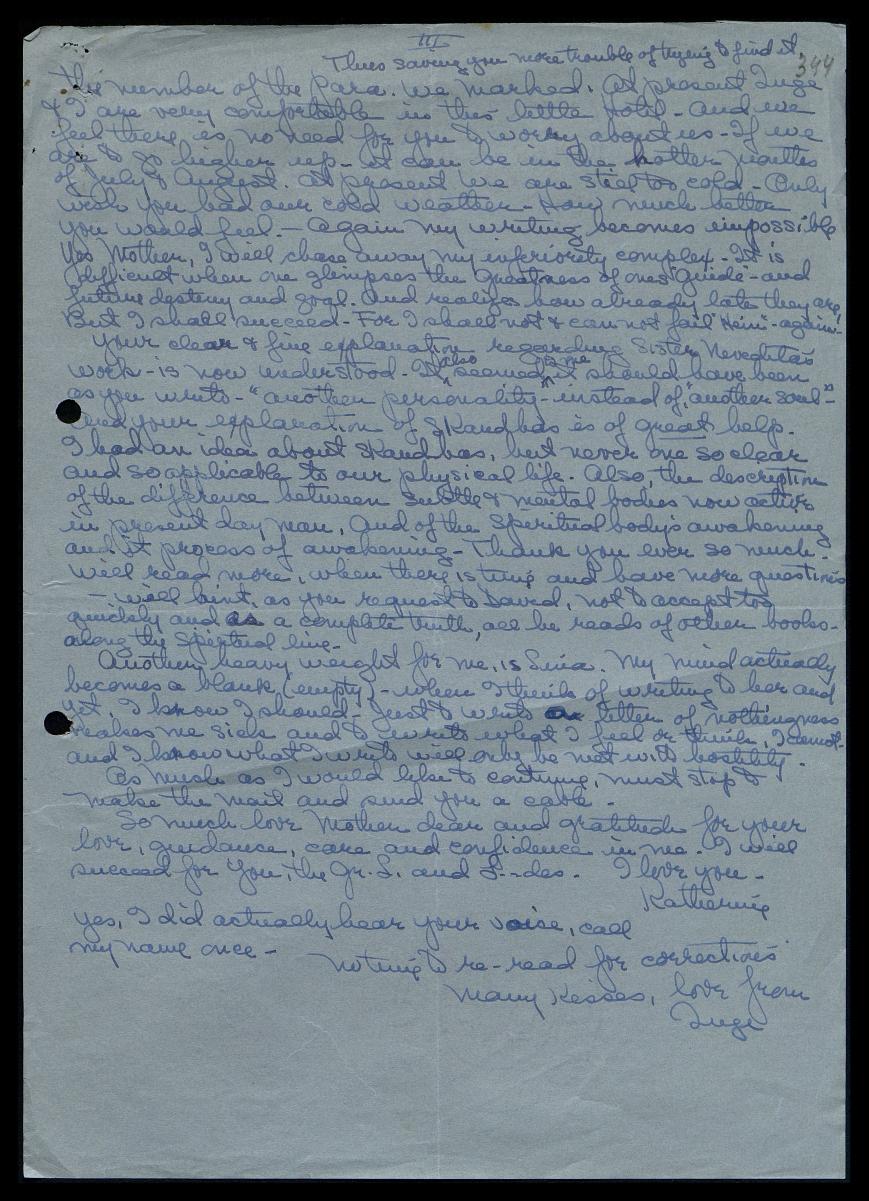 III
Thus saving you more trouble of trying to find it.
344
the number of the Para. we marked. At present Inge
& I are very comfortable in this little Hotel - and we
feel there is no need for you to worry about us - If we
are to go higher up - it can be in the hotter months
of July & August. At present we are still too cold - Only
wish you had our cold weather - How much better
you would feel. - Again my writing becomes impossible
Yes Mother, I will chase away my inferiority complex - It is
difficult when one glimpses the greatness of ones "Guide" - and
future destiny and goal. And realizes how already late they are,
But I shall succeed - For I shall not & cannot fail "Him" - again -
Your clear & fine explanation regarding Sister Nevedita's
work - is now understood. It also seemed to me it should have been
as you write - "another personality" - instead of, "another soul" -
And your explanation of Skandhas is of great help.
I had an idea about Skandhas, but never one so clear
and so applicable to our physical life. Also, the description
of the difference between subtle & mental bodies now active
in present day man, and of the Spiritual body's awakening
and it process of awakening - Thank you ever so much.
Will read more, when there is time and have more questions
- will hint, as you request to David, not to accept too
quickly and as a complete truth, all he reads of other books -
along the Spiritual line -
Another heavy weight for me, is Sina. My mind actually
becomes a blank (empty) - when I think of writing to her and
yet, I know I should - Just to write a letter of nothingness
makes me sick and to write what I feel or think, I cannot -
and I know what I write will only be met with hostility.
As much as I would like to continue, must stop to
make the mail and send you a cable.
So much love Mother dear and gratitude for your
love, guidance, care and confidence in me. I will
succeed for You, the Gr. L. and F.-des. I love you -
Katherine
Yes, I did actually hear your voise, call
my name once -
no time to re-read for corrections
Many Kisses, love from
Inge